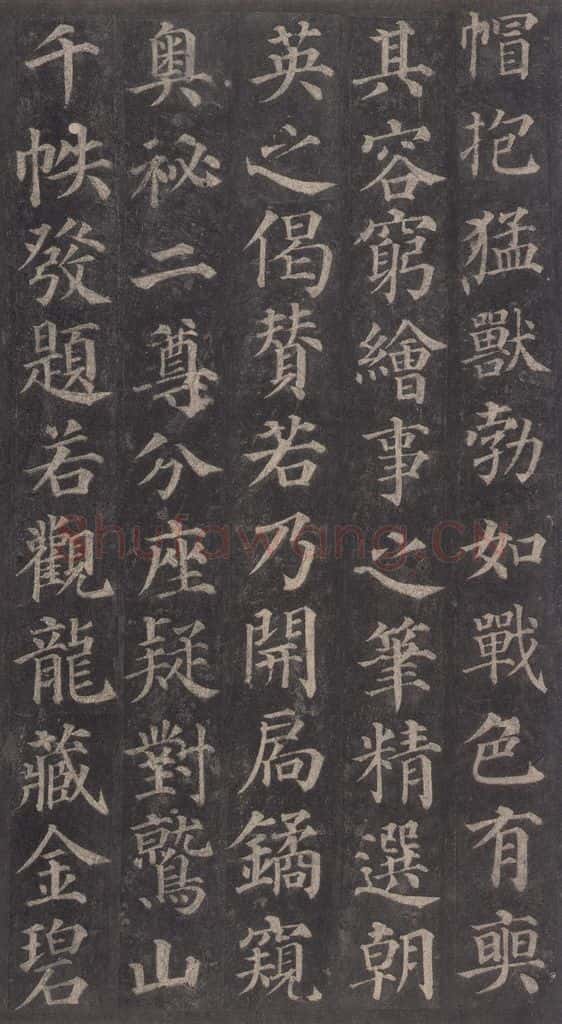 帽抱猛獸勃如戰色有奭
其容窮繪事之筆精選朝
英之偈贊若乃開扃鐍窺
奧祕二尊分座疑對鷲山
千帙發題若觀龍藏金碧
shufawang.cn